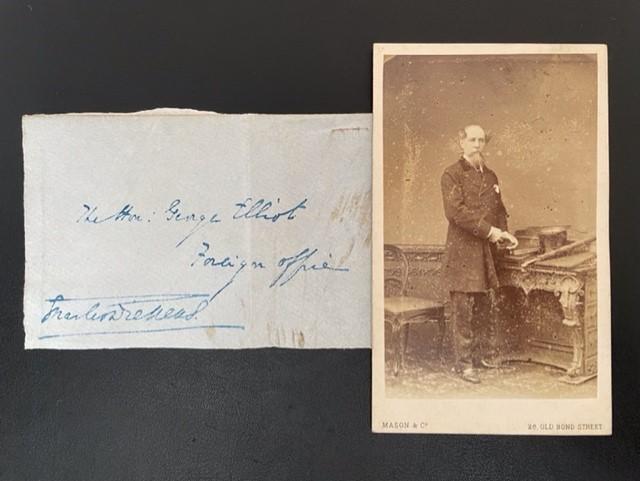 The Hon: George Elliot
Foreign office
Charles Dickens.
MASON & Co
28, OLD BOND STREET.